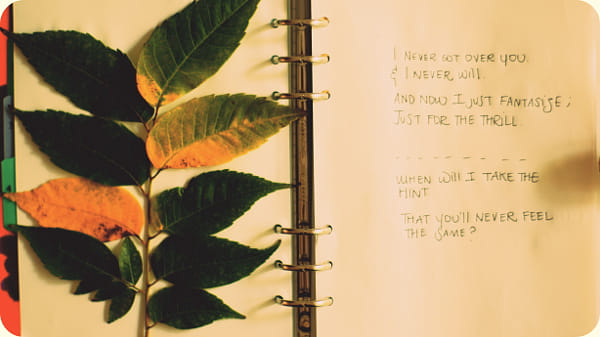 I NEVER GOT OVER YOU.
& I NEVER WILL.
AND NOW I JUST FANTASISE;
JUST FOR THE THRILL
WHEN WILL I TAKE THE
HINT
THAT YOU'LL NEVER FEEL
THE SAME?